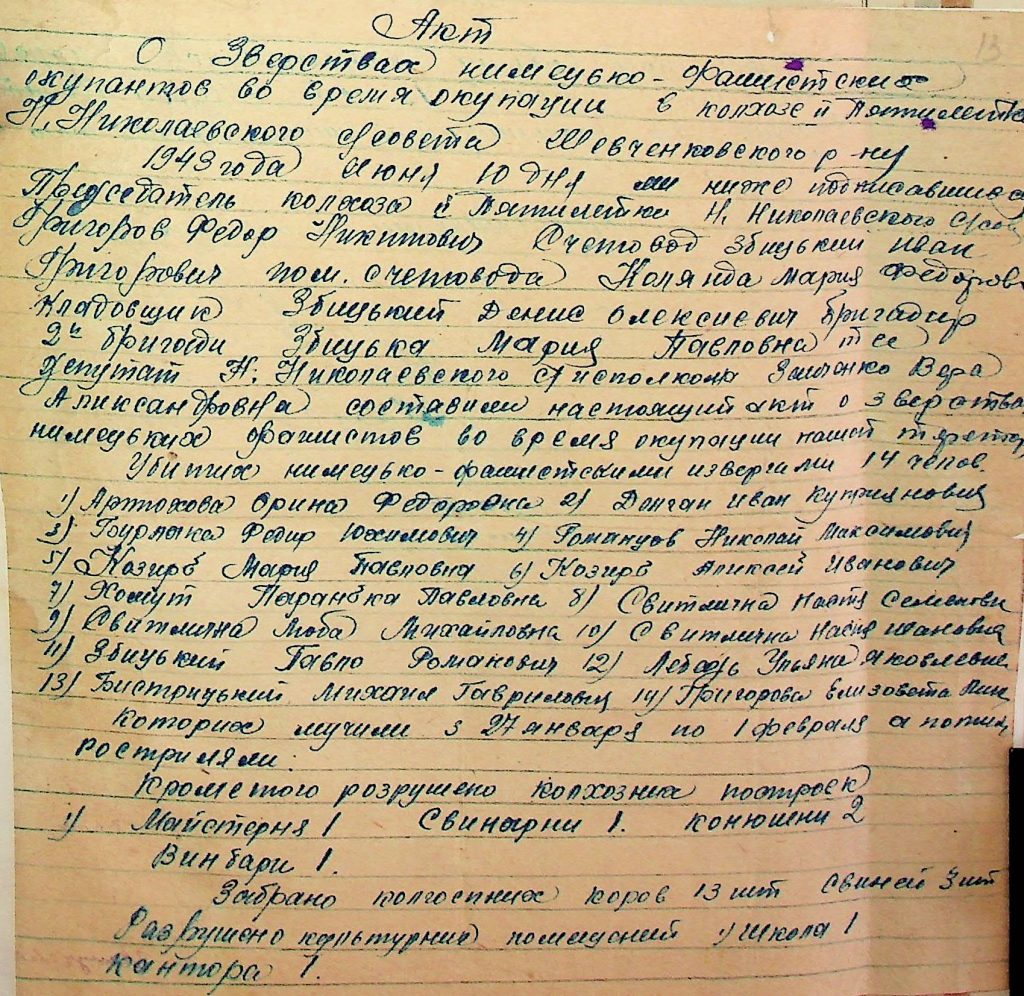 13
Акт
О Зверствах нимецько-фашистских
окупантов во время окупации в колхозе II Пятилетка
Н. Николаевского с/совета Шевченковского р-ну
1943 года Июня 10 дня ми ниже подписавшиеся
Председатель колхоза II Пятилетка Н. Николаевского с/сов
Григоров Федор Никитович Счетовод Збицький Иван
Григорович пом. счетовода Коляда Мария Федоров
кладовщик Збицький Денис Олексиевич бригадир
2й бригади Збицька Мария Павловна
Депутат Н. Николаевского с/исполкома Вера
Аликсандровна составили настоящий акт о зверства
нимецьких фашистов во время окупации нашей
Убитих нимецько-фашистькими извергими 14 челов.
1) Артюхова Орина Федоровна 2) Долган Иван Куприянович
3) Бурлака Федир Юхимович 4) Романцов Николай Максимович
5) Козирь Мария Павловна 6) Козирь Аликсей Иванович
7) Хомут Параська Павловна 8) Свитлична Настя Семеновн
9) Свитлична Люба Михайловна 10) Свитлична Ивановна
11) Збицький Павло Романович 12) Лебедь Ульяна Яковлевна
13) Бистрицький Михаил Гаврилович 14) Григорова Елизовета
которих мучили з 27 января по 1 февраля а потим
ростриляли.
Кроме того розрушено колхозних построек
1) Майстерня 1 Свинарни 1. конюшни 2
Винбари 1.
Забрано колгоспних коров 13 шт свиней 3 шт
Разрушено культурних помещений 1) школа 1
кантора 1.